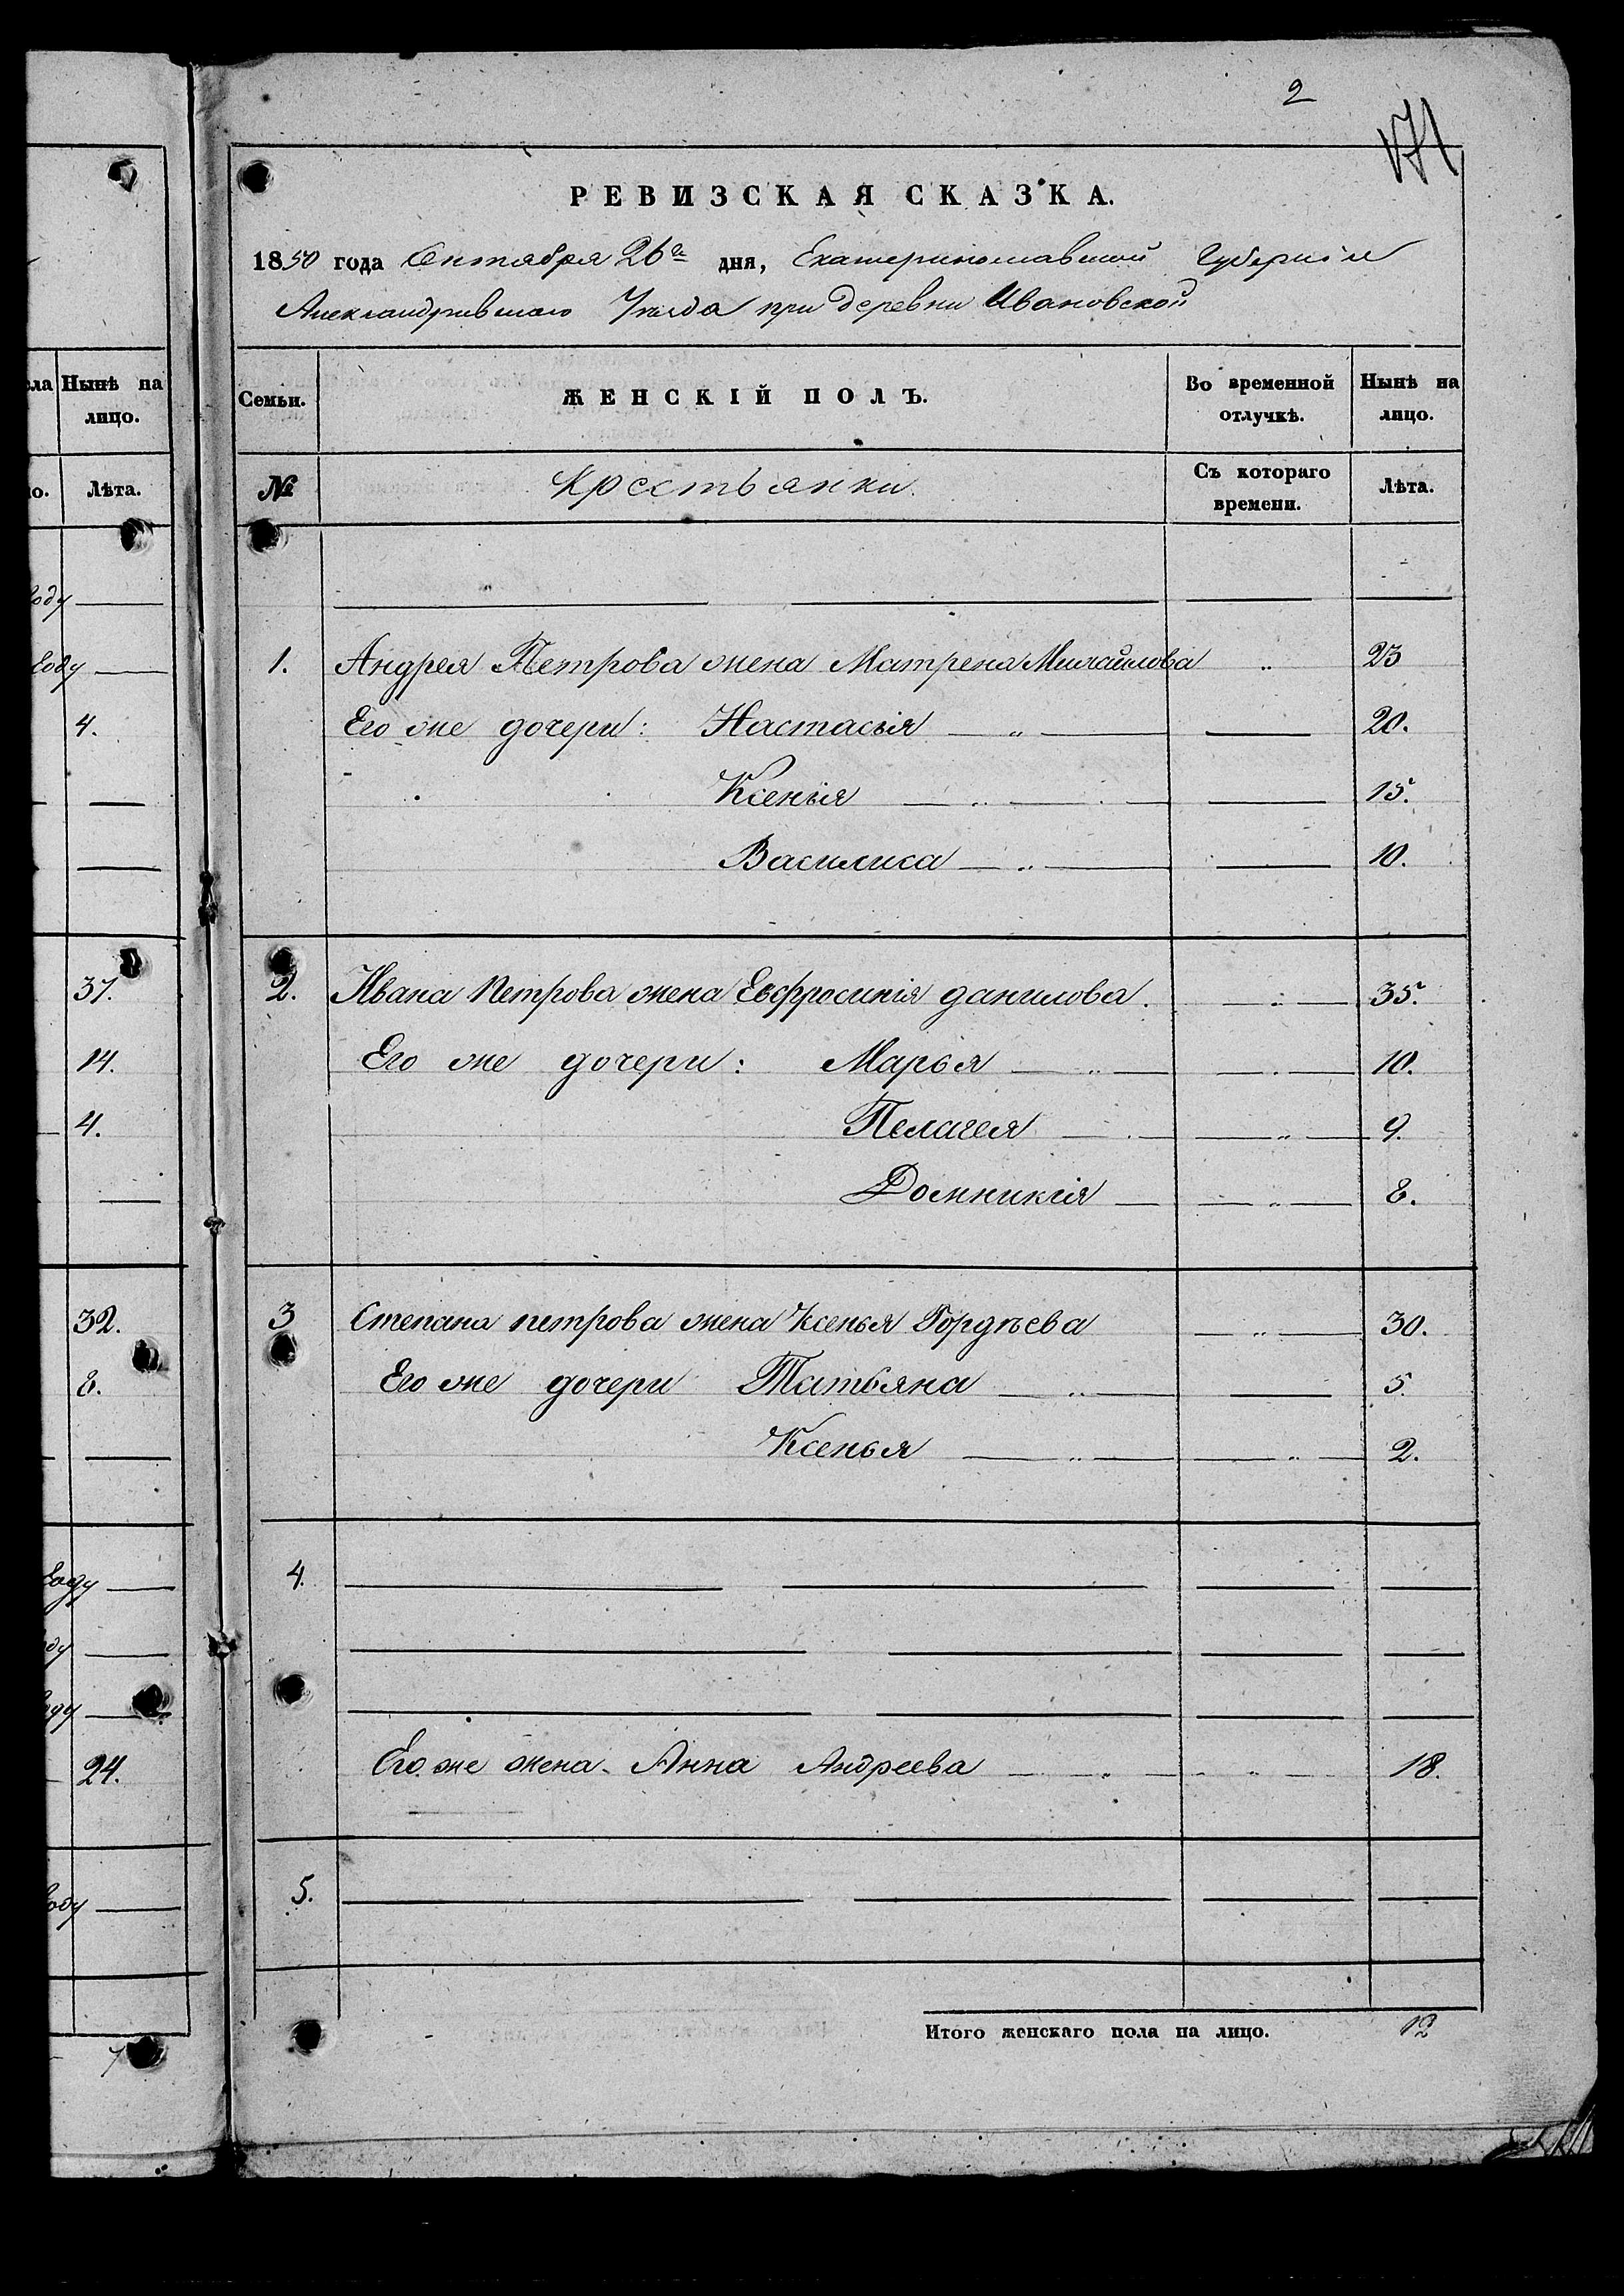 2
171
РЕВИЗСКАЯ СКАЗКА.
1850 года Октября 26го дня, Екатеринославской Губерніи
Александривскаго Уѣзда при деревни Ивановской
ла Нынѣ на лицо.
о. Лѣта.
году
году
4.
37.
14.
4.
32.
8.
году
ду
году
24.
году
7
Семьи. ЖЕНСКІЙ ПОЛЪ. Во временной отлучкѣ. Нынѣ на лицо.
№ Крестьянки. Съ котораго времени. Лѣта.
1. Андрея Петрова жена Матрена Михайлова " 23
Его же дочери: Настасья " 20.
Ксенья " 15.
Василиса " 10.
2. Ивана Петрова жена Евфросинія данилова. " 35.
Его же дочери: Марья " 10.
Пелагея " 9.
Домникія " 8.
3 Степана петрова жена Ксенья Гордѣева " 30.
Его же дочери Татьяна " 5.
Ксенья " " 2.
4.
Его же жена Анна Андреева " " 18.
5.
Итого женскаго пола на лицо. 12